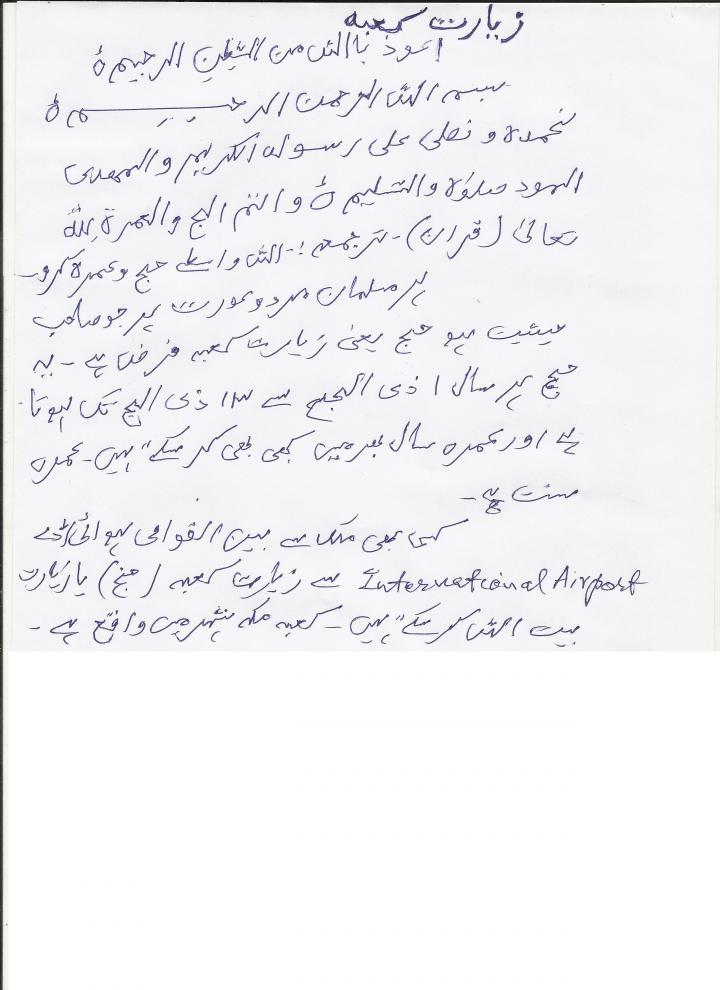 زیارت کعبہ
اعوذ باالله من الشیطن الرجیم ہ
بسم الله الرحمن الرحیم ہ
نحمدہ و نصلی علی رسولہ الکریم والمھدی
الموعود صلوٰۃ والتسلیم ہ و اتمم الحج والعمرۃ لِلّٰہ
تعالیٰ (قران)۔ ترجمہ :۔ الله واسطے حج و عمرہ کرو۔
ہر مسلمان مرد و عورت پر جو صاحب
حیثیت ہو حج یعنی زیارت کعبہ فرض ہے ۔ یہ
حج ہر سال ۱ ذی الحج سے ۱۳ ذی الحج تک ہوتا
ہے اور عمرہ سال بھر میں کبھی بھی کر سکتے ہیں۔ عمرہ
سنت ہے۔
کسی بھی ملک سے بین القوامی ہوائی اڈے
International Airport سے زیارت کعبہ (حج) یا زیارت
بیت الله کر سکتے ہیں ۔ کعبہ مکہ شہر میں واقع ہے ۔